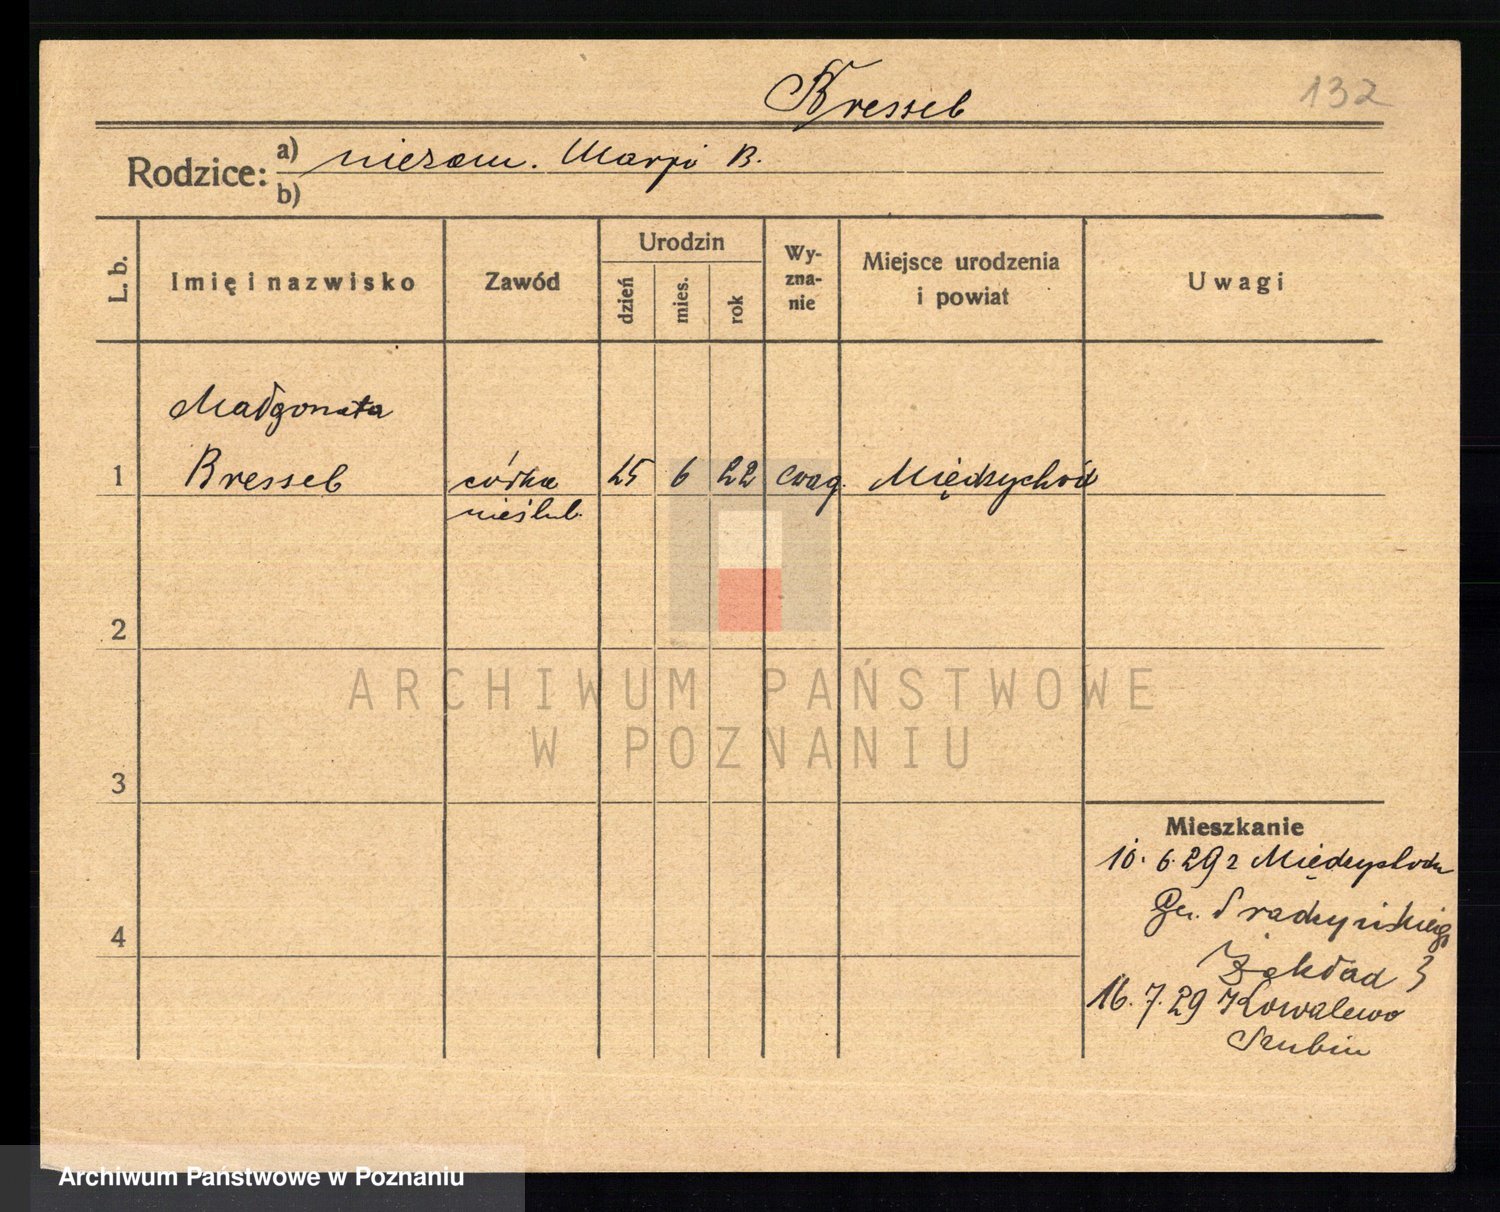 Bresseb
132
Rodzice: a) niezam. Maryi B.
b)
L. b.
Imię i nazwisko
Zawód
Urodzin
dzień
mies.
rok
Wy-
zna-
nie
Miejsce urodzenia
i powiat
Uwagi
Małgorzata
1 Bresseb córka 25 6 22 ewag. Międzychód
nieślub.
2
3
4
Mieszkanie
10. 6. 29 z Międzychodu
Zakład
16. 7. 29 Kowalewo
Szubin
ARCHIWUM PAŃSTWOWE
W POZNANIU
Archiwum Państwowe w Poznaniu